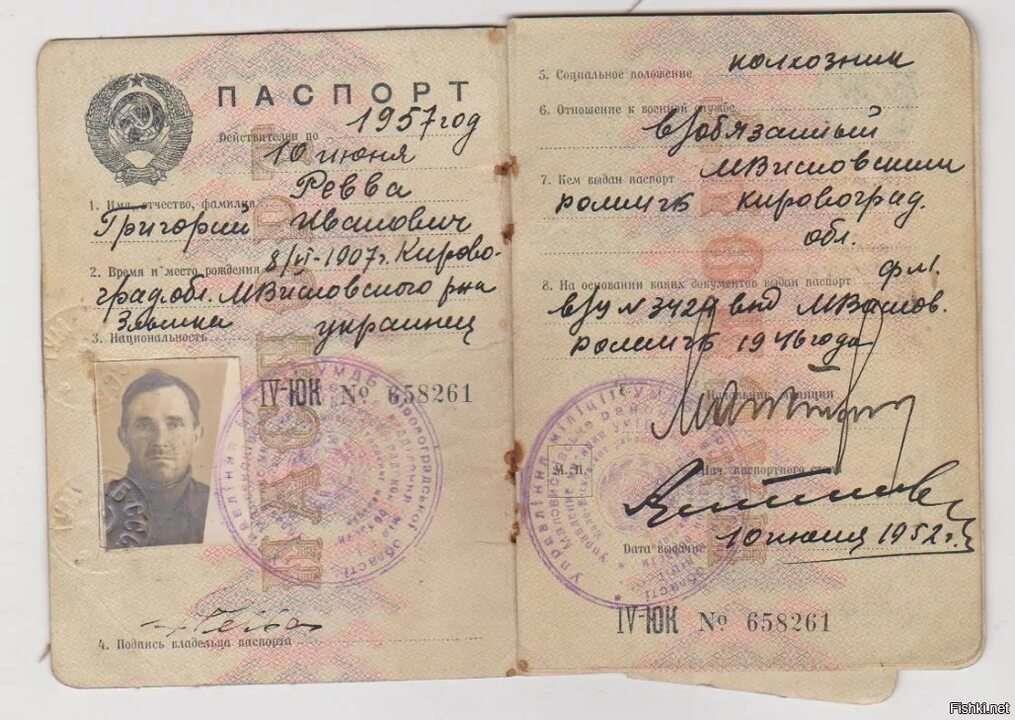 ПАСПОРТ
Действителен по 1957 год
10 июня
Ревва
1. Имя, отчество, фамилия
Григорий Иванович
2. Время и место рождения 8/VI-1907 г. Кирово-
град. обл. МВисковского р-на
Злынка украинец
3. Национальность
IV-ЮК № 658261
4. Подпись владельца паспорта
5. Социальное положение колхозник
6. Отношение к военной службе
в/обязанный
7. Кем выдан паспорт МВисковским
РОМ МГБ Кировоград.
обл.
8. На основании каких документов выдан паспорт ф. №1.
в/у № 3424 выд МВисков.
РОМ МГБ 1946 года
Начальник милиции
М. П.
Нач. паспортного стола
Дата выдачи 10 июня 1952 г.
IV-ЮК № 658261
Fishki.net